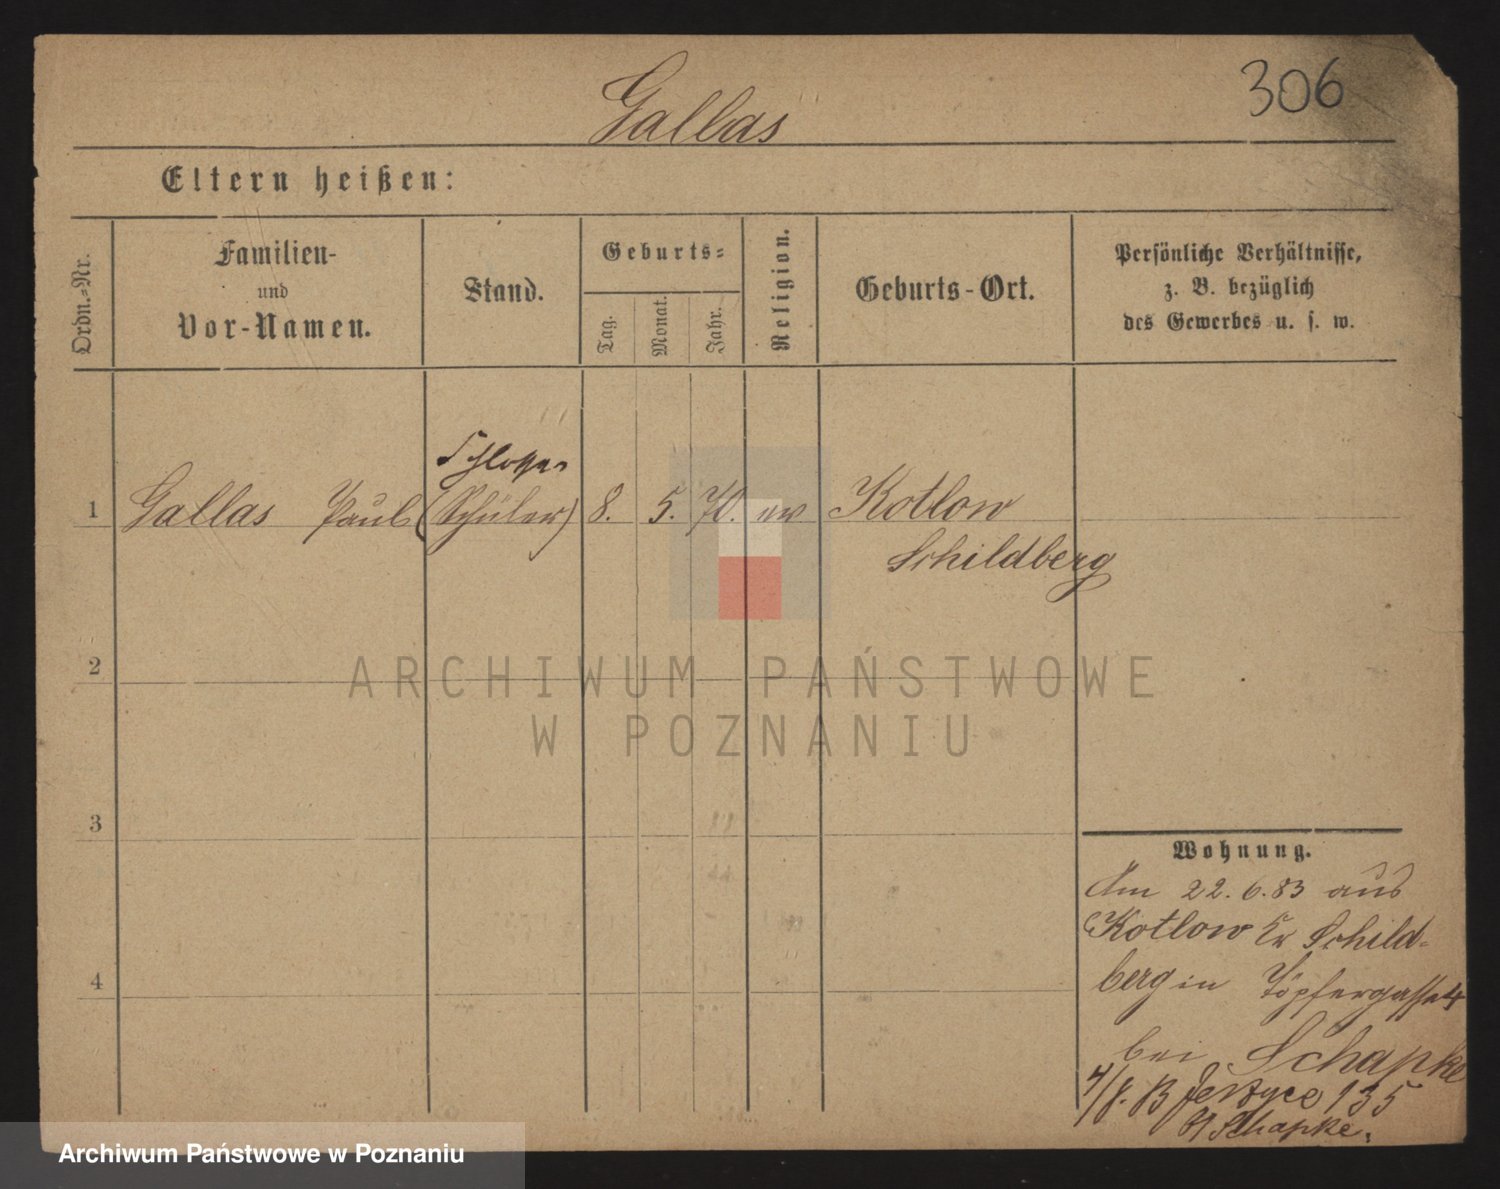 306
Gallas
Eltern heißen:
Ordn.-Nr.
Familien-
und
Vor-Namen.
Stand.
Geburts-
Tag.
Monat.
Jahr.
Religion.
Geburts-Ort.
Persönliche Verhältnisse,
z. B. bezüglich
des Gewerbes u. s. w.
Schlosser
1 Gallas Paul (Schüler) 8. 5. 70. ev Kotlow
Schildberg
2
ARCHIWUM PAŃSTWOWE
W POZNANIU
3
Wohnung.
Am 22. 6. 83 aus
Kotlow Kr Schild-
4
berg in Töpfergasse 4
bei Schapke
Jersyce 135
Schapke.
Archiwum Państwowe w Poznaniu